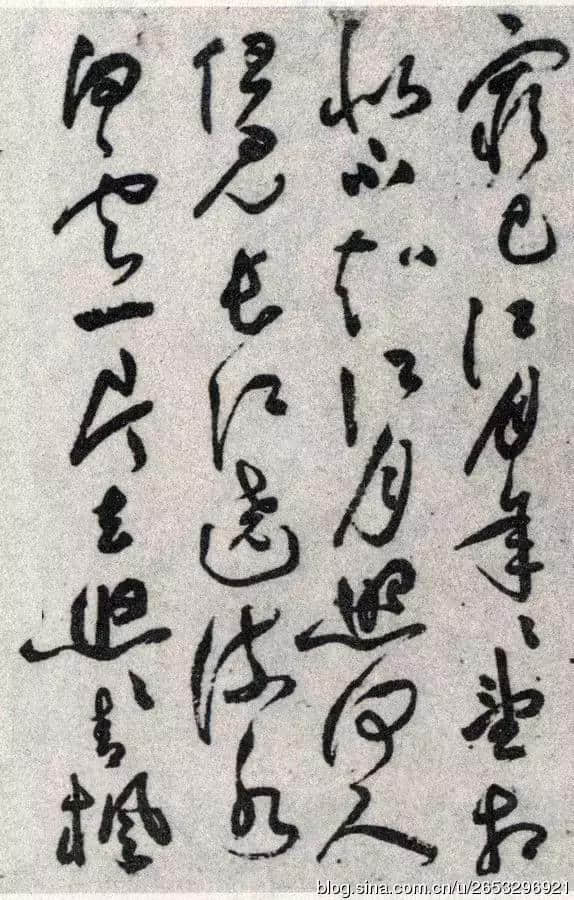 窮已江月年〻望相
似不知江月照何人
但見長江送流水
白雲一片去悠〻青楓
blog.sina.com.cn/u/2653296921